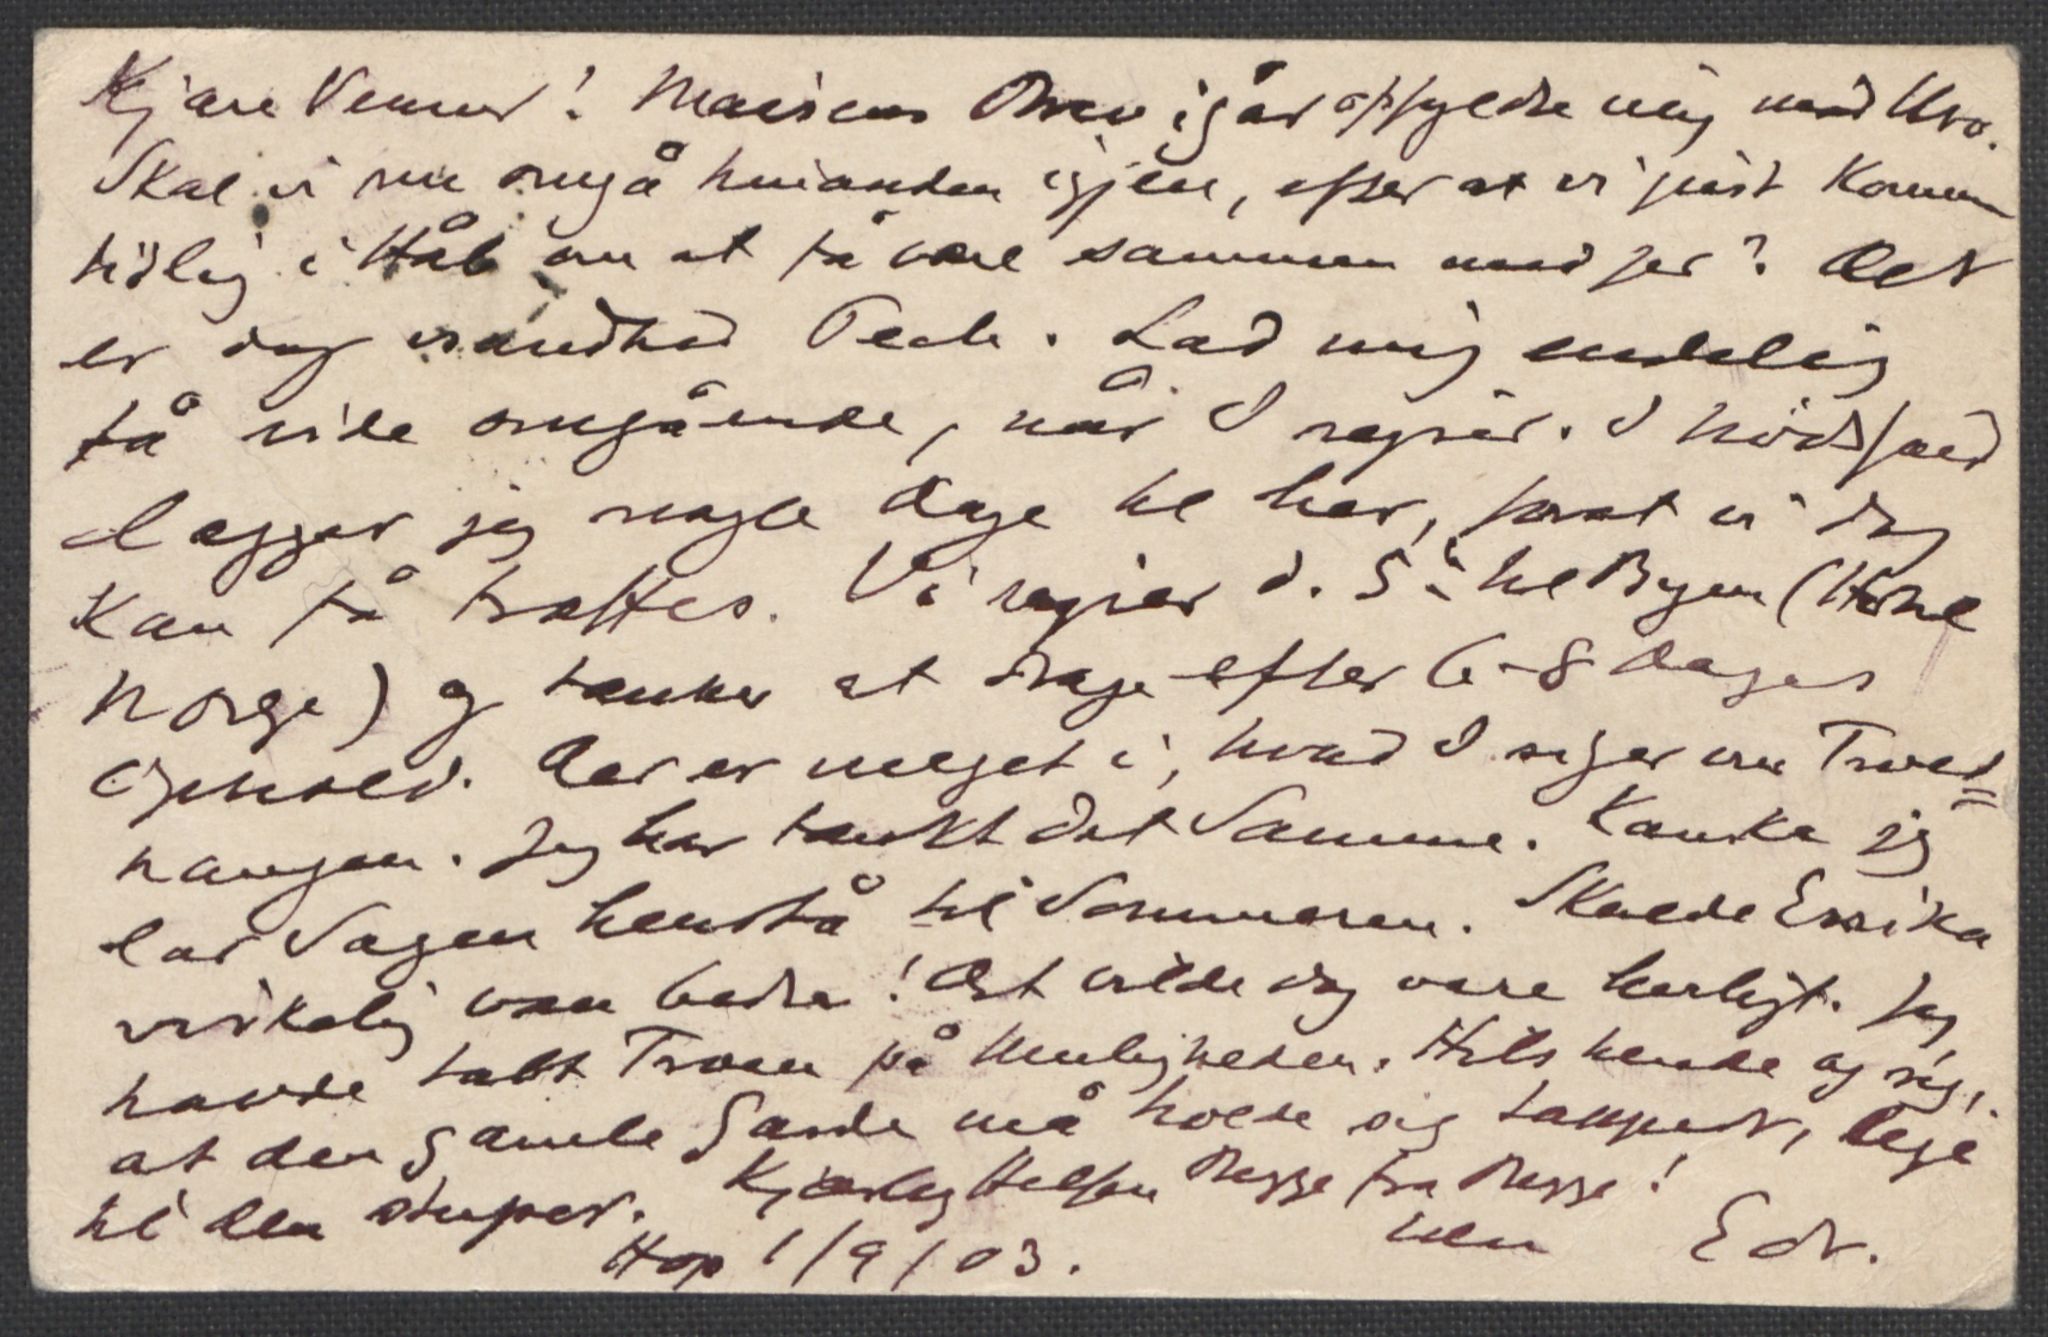 Kjære Venner! Maisens Brev igår opfyldte mig med Uro.
Skal vi nu omgå hinanden igjen, efter at vi just kommer
tidlig i Håb om at få være sammen med Jer? Det
er dog isandhed Pech. Lad mig endelig
få vide omgående, når I rejser. I Nödsfald
lægger jeg nogle Dage til her, forat vi dog
kan få træffes. Vi rejser d. 5te til Byen (Hotel
Norge) og tænker at drage efter 6-8 Dages
Ophold. Der er meget i, hvad I siger om Trold=
haugen. Jeg har tænkt det Samme. Kanske jeg
lar Sagen henstå til Sommeren. Skulde Errika
virkelig være bedre! Det vilde dog være herligt. Jeg
havde tabt Troen på Muligheden. Hils hende og sig,
at den gamle Garde må holde sig tappert, lige
til den stuper. Kjærlig Hilsen Begge fra Begge!
Hop 1/9/03. Edv.